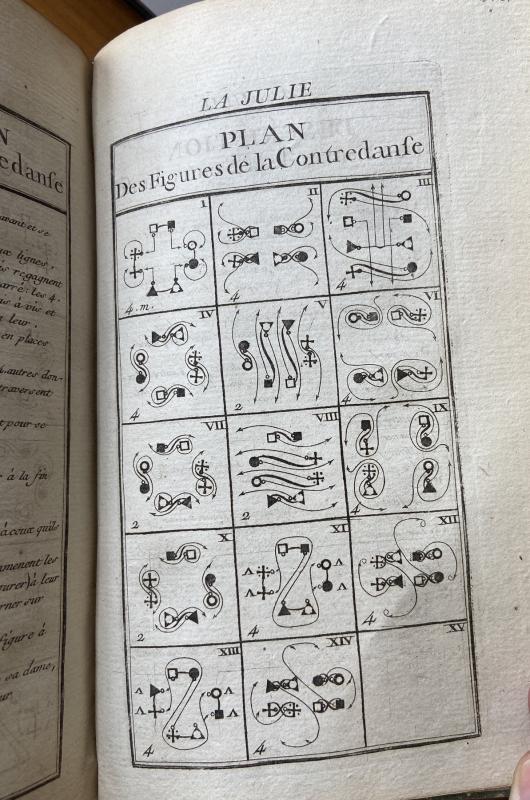 N
redanse
vant et se
lignes,
regagnent
les 4.
à vis et
leur.
en places
autres don-
traversent
pour se
à la fin
à ceux qu'ils
amenent les
à leur
rner sur
figure à
sa dame,
LA JULIE
PLAN
Des Figures de la Contredanse
I
4. m.
II
4
III
4
IV
4
V
2
VI
4
VII
2
VIII
2
IX
4
X
2
XI
4
XII
4
XIII
4
XIV
4
XV